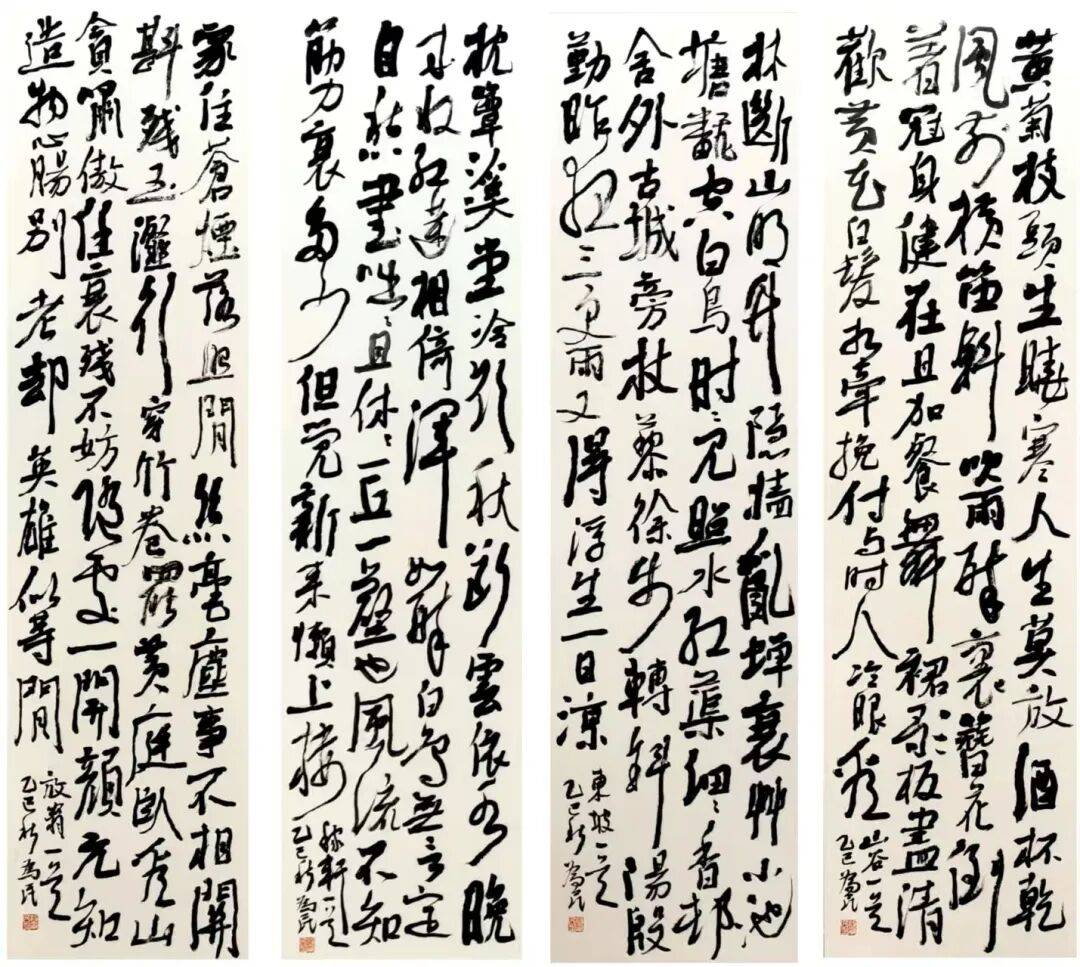 黄菊枝頭生曉寒人生莫放酒杯乾
風前橫笛斜吹雨醉裏簪花倒
著冠身健在且加餐舞裙歌板盡清
歡黄花白髮相牽挽付与時人冷眼看
山谷一首
乙巳為民
林斷山明竹隱牆亂蟬衰草小池
塘翻空白鳥時〻見照水紅蕖細〻香村
舍外古城旁杖藜徐步轉斜陽殷
勤昨夜三更雨又得浮生一日涼
東坡一首
乙巳秋為民
枕簟溪堂冷欲秋斷雲依水晚
來收紅蓮相倚渾如醉白鳥無言定
自愁書咄〻且休〻一丘一壑也風流不知
筋力衰多少但覺新來懶上樓
稼軒一首
乙巳秋為民
家住蒼煙落照閒絲毫塵事不相關
斟殘玉瀣行穿竹卷罷黄庭臥看山
貪嘯傲任衰殘不妨隨處一開顏元知
造物心腸別老却英雄似等閒
放翁一首
乙巳秋為民